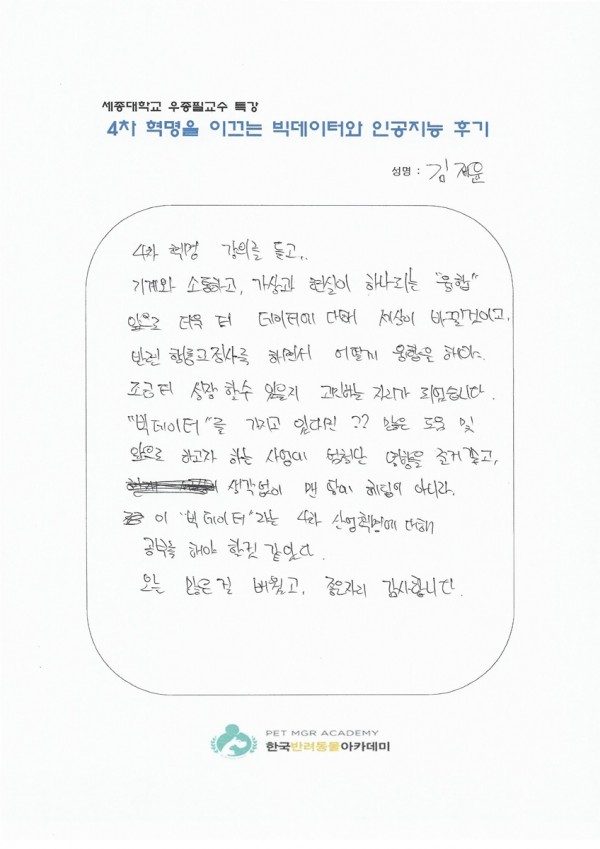 세종대학교 우종필교수 특강
4차 혁명을 이끄는 빅데이터와 인공지능 후기
성명 : 김재윤
4차 혁명 강의를 듣고,.
기계와 소통하고, 가상과 현실이 하나되는 "융합"
앞으로 더욱 더 데이터에 대해 세상이 바뀔것이고,
반린 행동교정사를 하면서 어떻게 융합을 해야
조금더 성장 할수 있을지 고민하는 자리가 되었습니다.
"빅데이터"를 가지고 있다면 ?? 많은 도움 및
앞으로 하고자 하는 사업에 엄청난 영향을 준거 같고,
생각없이 맨 땅에 헤딩이 아니라.
이 "빅데이터"라는 4차 산업혁명에 대해
공부를 해야 할것 같았다.
오늘 많은걸 배웠고, 좋은자리 감사합니다.
PET MGR ACADEMY
한국반려동물아카데미